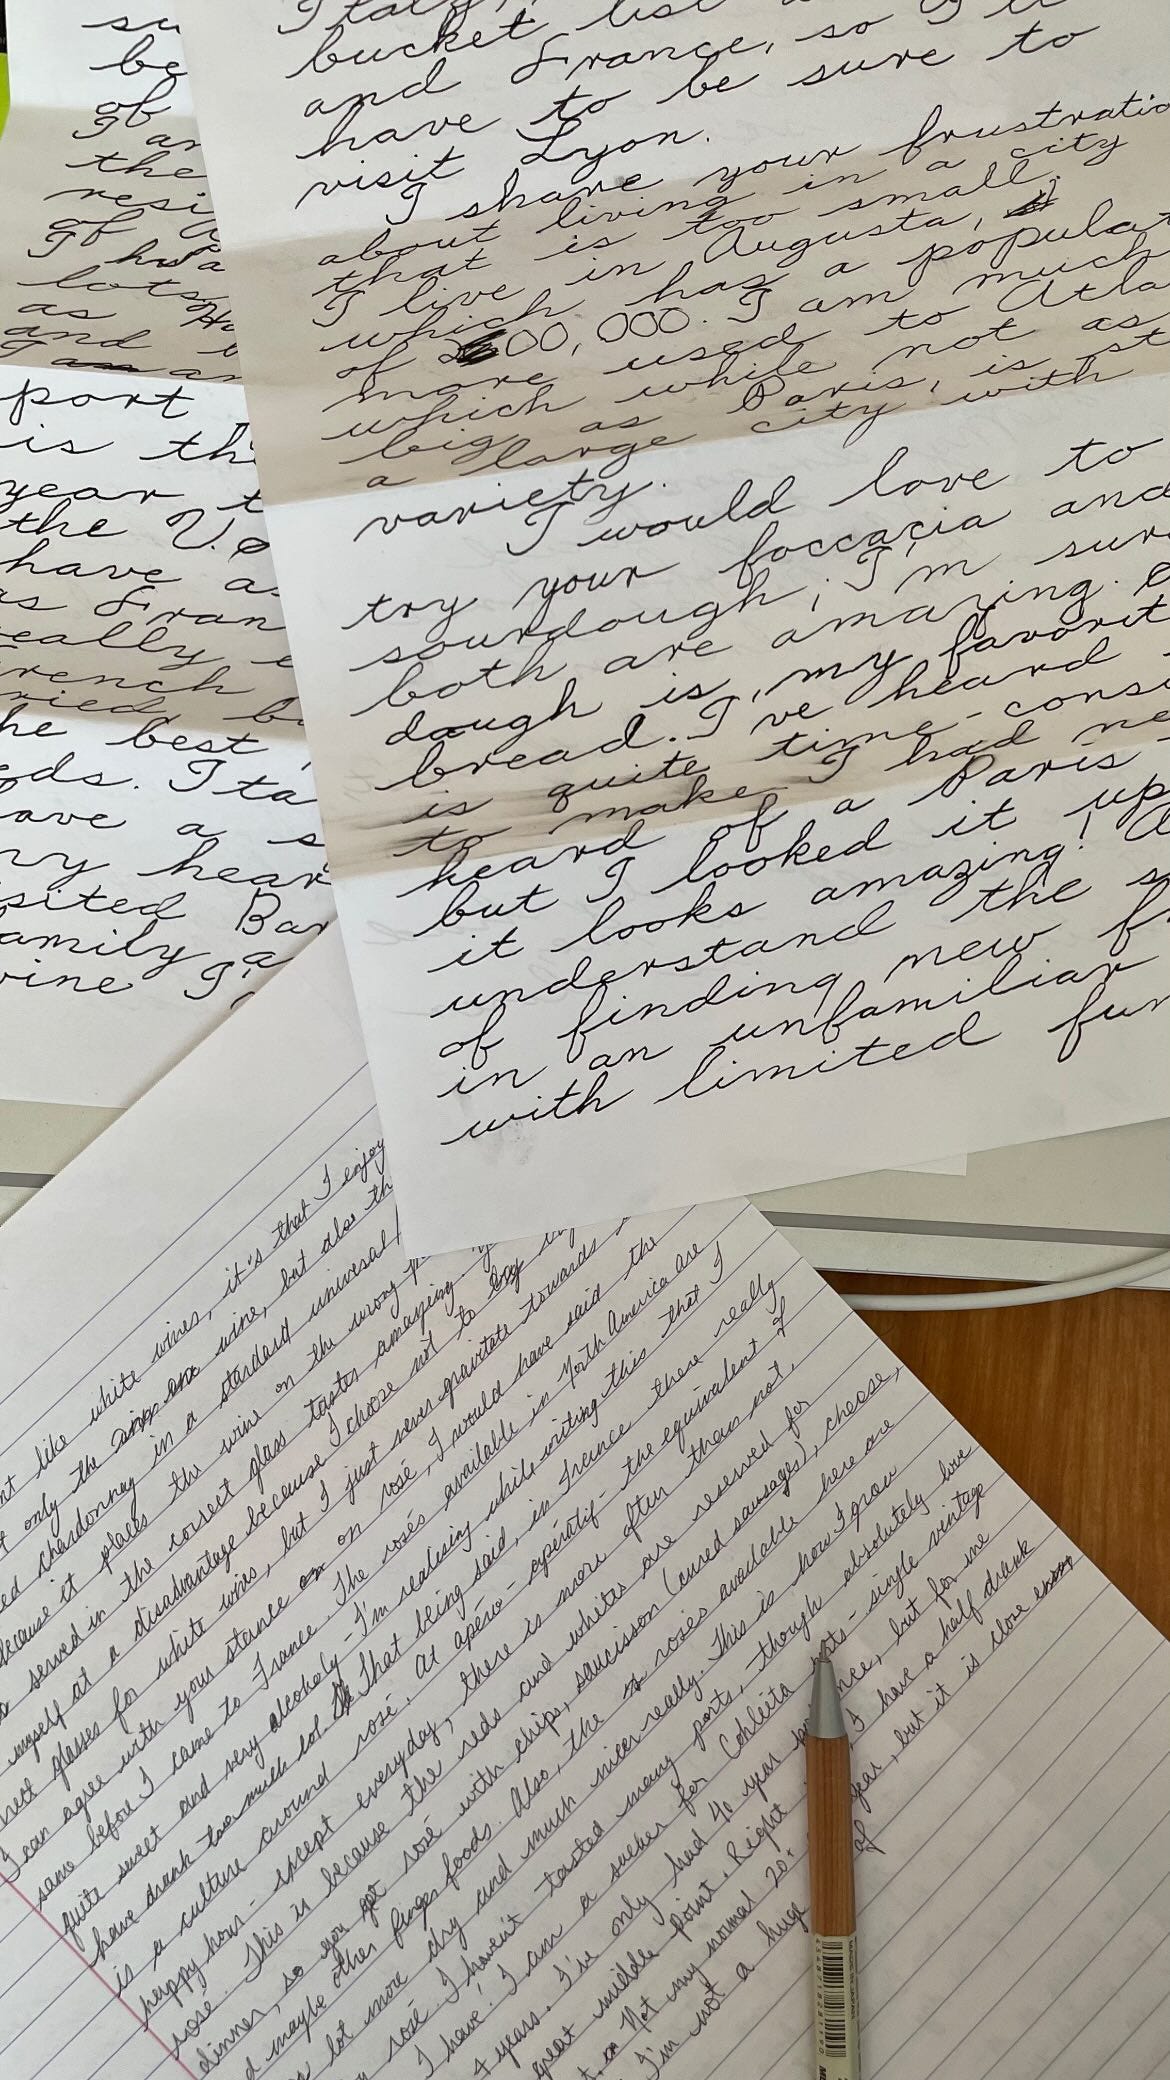 su
be
of
I am
the
resi
of
I had a
lots
as
and
I am an
port
is th
year t
the U.
have as
as Fran
really e
rench b
ried
he best
ds. I ta
ave a s
my hear
sited Bar
amily a
wine I'
Italy,
bucket list
and France, so I
have to be sure to
visit Lyon.
I share your frustratio
about living in a city
that is too small.
I live in Augusta,
which has a populat
of 00,000. I am much
more used to Atla
which while not as
big as Paris, is st
a large city with
variety.
I would love to
try your foccacia and
sourdough; I'm sure
both are amazing.
dough is my favorit
bread. I've heard
is quite time-consu
to make. I had ne
heard of a Paris-
but I looked it up
it looks amazing!
understand the s
of finding new f
in an unfamiliar
with limited fun
like white wines, it's that I enjoy
only the wine, but also th
ed chardonnay in a standard universal
because it places the wine on the wrong p
served in the correct glass tastes amazing
myself at a disadvantage because I choose not to
glasses for white wines, but I just never gravitate towards
I can agree with your stance on rosé, I would have said the
same before I came to France. The rosés available in North America are
quite sweet and very alcoholy - I'm realising while writing this that I
have drank too much lol. That being said, in France there really
is a culture around rosé. At apéro - apéritif - the equivalent of
happy hour - except everyday, there is more often than not,
rosé. This is because the reds and whites are reserved for
dinner, so you get rosé with chips, saucisson (cured sausages), cheese,
d maybe other finger foods. Also, the rosés available here are
lot more dry and much nicer really. This is how I grew
rosé. I haven't tasted many ports, though absolutely love
I have! I am a sucker for Colheita ports - single vintage
years. I've only had 40 year once, but for me
great middle point. Right I have a half drank
Not my normal 20 year, but it is close enough
I'm not a huge of